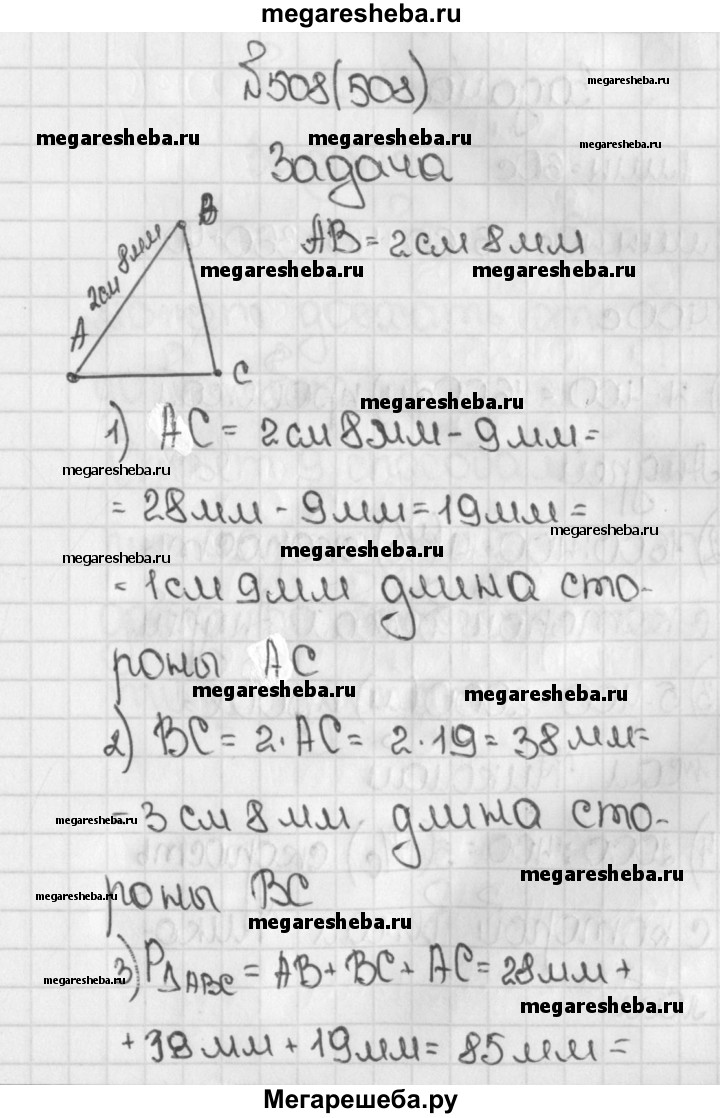 megaresheba.ru
№508(508)
megaresheba.ru
megaresheba.ru megaresheba.ru megaresheba.ru
Задача
B
AB = 2 см 8 мм
2 см 8 мм
megaresheba.ru megaresheba.ru
A
C
megaresheba.ru
1) AC = 2 см 8 мм - 9 мм =
megaresheba.ru
= 28 мм - 9 мм = 19 мм =
megaresheba.ru
megaresheba.ru megaresheba.ru
= 1 см 9 мм длина сто-
роны AC
megaresheba.ru megaresheba.ru
2) BC = 2 · AC = 2 · 19 = 38 мм =
megaresheba.ru
= 3 см 8 мм длина сто-
megaresheba.ru
роны BC
megaresheba.ru
megaresheba.ru
3) P△ABC = AB + BC + AC = 28 мм +
megaresheba.ru
megaresheba.ru
+ 38 мм + 19 мм = 85 мм =
Мегарешеба.ру